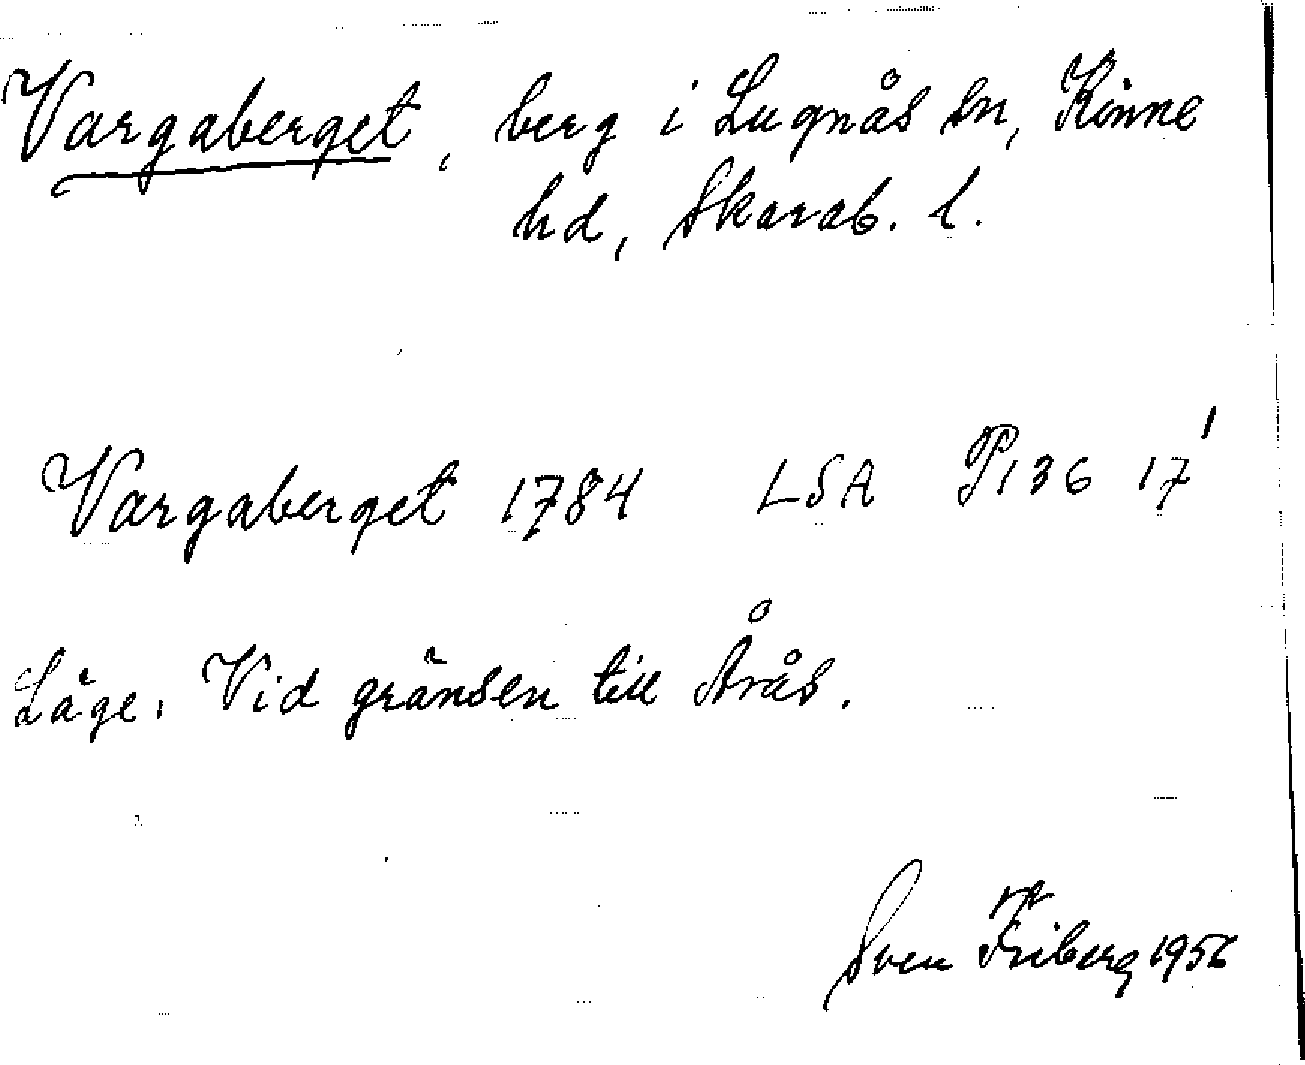 Vargaberget, berg i Lugnås sn, Kinne
hd, Skarab. l.
Vargaberget 1784 LSA P136 17¹
Läge. Vid gränsen till Årås.
Sven Friberg 1956